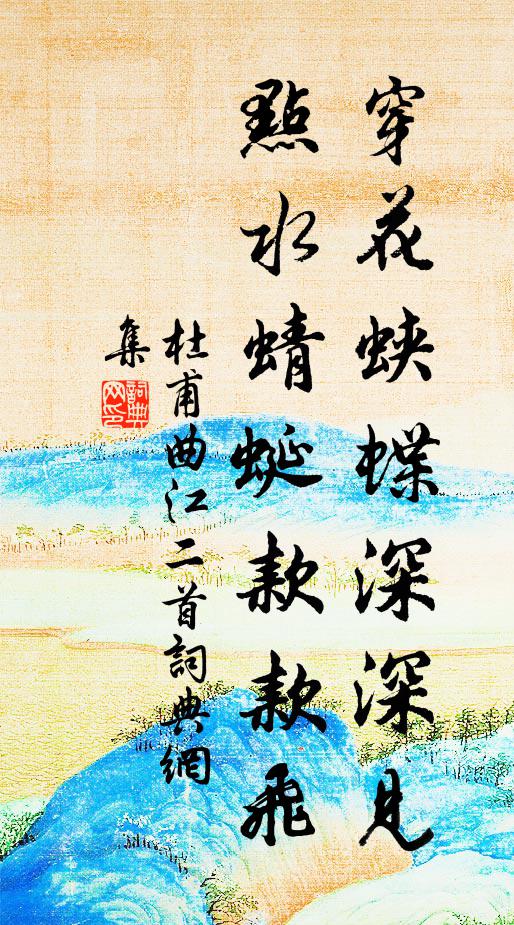 穿花蛺蝶深深見
點水蜻蜓款款飛
杜甫曲江二首詞典網
集
詞典
网印